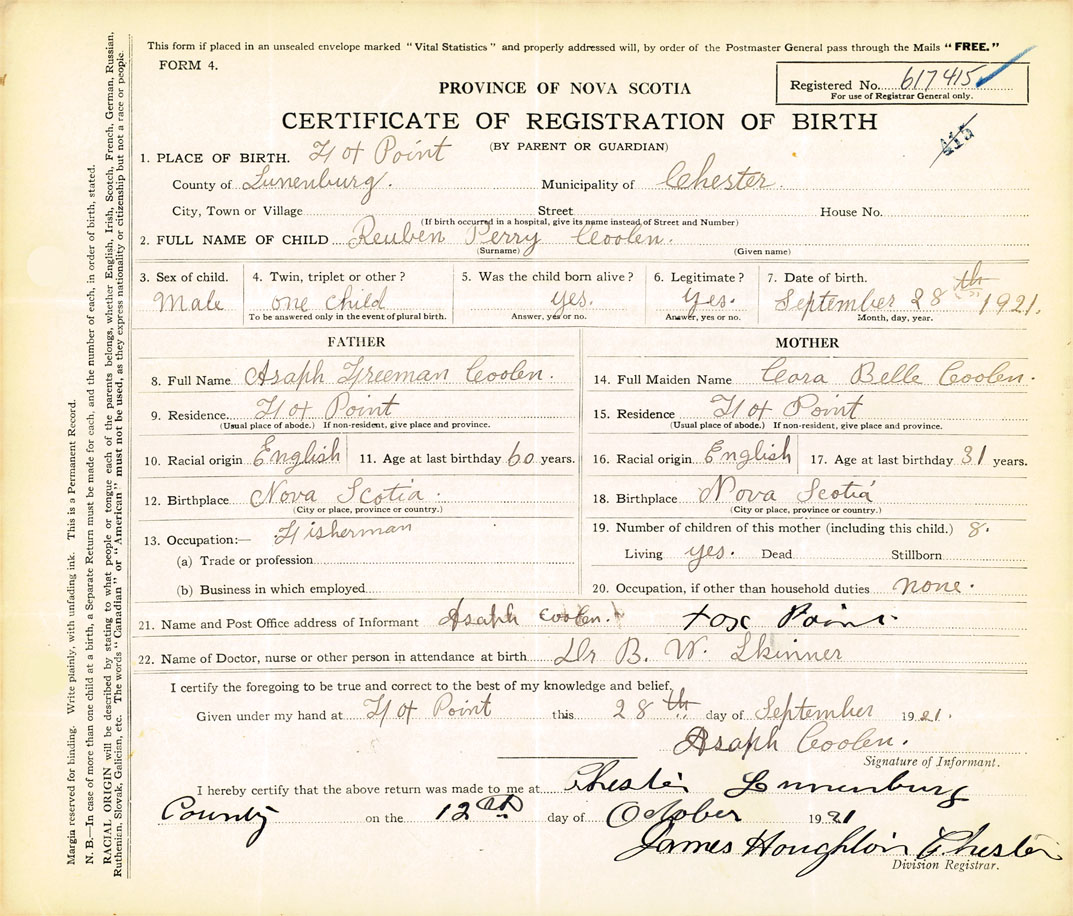 This form if placed in an unsealed envelope marked "Vital Statistics" and properly addressed will, by order of the Postmaster General pass through the Mails "FREE."
FORM 4.
Registered No. 617415
For use of Registrar General only.
PROVINCE OF NOVA SCOTIA
CERTIFICATE OF REGISTRATION OF BIRTH
415
(BY PARENT OR GUARDIAN)
1. PLACE OF BIRTH. Fox Point
County of Lunenburg. Municipality of Chester.
City, Town or Village Street House No.
(If birth occurred in a hospital, give its name instead of Street and Number)
2. FULL NAME OF CHILD Reuben Perry Coolen.
(Surname) (Given name)
3. Sex of child. 4. Twin, triplet or other? 5. Was the child born alive? 6. Legitimate? 7. Date of birth.
Male one child yes. Yes. September 28th 1921.
To be answered only in the event of plural birth. Answer, yes or no. Answer, yes or no. Month, day, year.
FATHER
8. Full Name Asaph Freeman Coolen.
9. Residence Fox Point
(Usual place of abode.) If non-resident, give place and province.
10. Racial origin English 11. Age at last birthday 60 years.
12. Birthplace Nova Scotia.
(City or place, province or country.)
13. Occupation:— Fisherman
(a) Trade or profession
(b) Business in which employed
MOTHER
14. Full Maiden Name Cora Belle Coolen.
15. Residence Fox Point
(Usual place of abode.) If non-resident, give place and province.
16. Racial origin English 17. Age at last birthday 31 years.
18. Birthplace Nova Scotia
(City or place, province or country.)
19. Number of children of this mother (including this child.) 8.
Living yes. Dead Stillborn
20. Occupation, if other than household duties none.
21. Name and Post Office address of Informant Asaph Coolen. Fox Point.
22. Name of Doctor, nurse or other person in attendance at birth Dr B. W. Skinner
I certify the foregoing to be true and correct to the best of my knowledge and belief.
Given under my hand at Fox Point this 28th day of September 1921.
Asaph Coolen.
Signature of Informant.
I hereby certify that the above return was made to me at Chester Lunenburg
County on the 12th day of October 1921
James Houghton Chester
Division Registrar.
Margin reserved for binding. Write plainly, with unfading ink. This is a Permanent Record.
N. B.—In case of more than one child at a birth, a Separate Return must be made for each, and the number of each, in order of birth, stated.
RACIAL ORIGIN will be described by stating to what people or tongue each of the parents belongs, whether English, Irish, Scotch, French, German, Russian,
Ruthenian, Slovak, Galician, etc. The words "Canadian" or "American" must not be used, as they express nationality or citizenship but not a race or people.